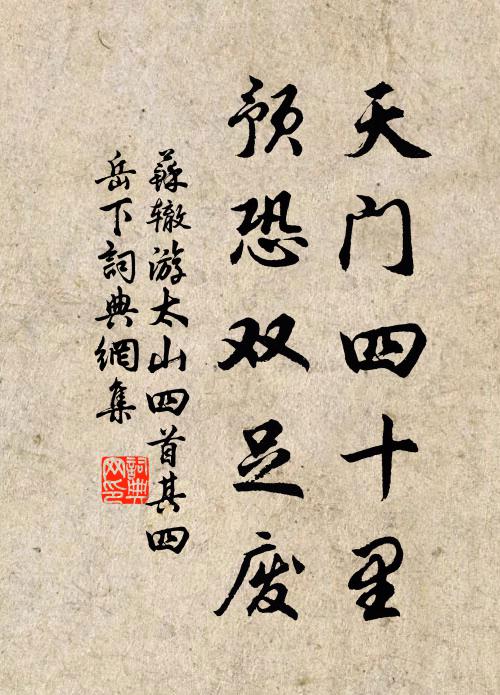 天门四十里
预恐双足废
蘇辙游太山四首其四
岳下詞典網集
詞典
网印